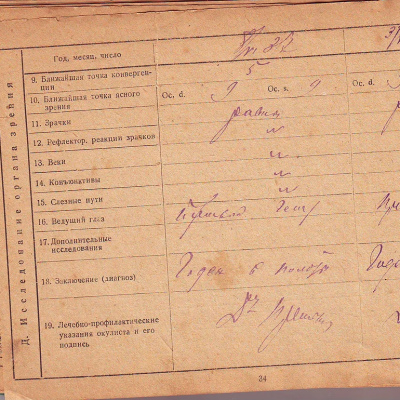 Д. Исследование органа зрения
Год, месяц, число
9. Ближайшая точка конверген-
ции
5
10. Ближайшая точка ясного
зрения
Oc. d. 9 Oc. s. 9
11. Зрачки
равны
12. Рефлектор, реакции зрачков
N
13. Веки
N
14. Конъюнктивы
N
15. Слезные пути
N
16. Ведущий глаз
17. Дополнительные
исследования
18. Заключение (диагноз)
Годен к полётам
19. Лечебно-профилактические
указания окулиста и его
подпись
34